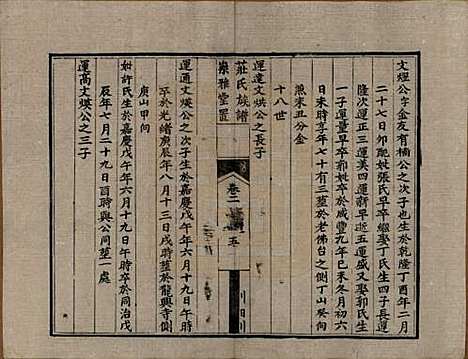 文煙公字金友有楠公之次子也生於乾隆丁酉年二月
二十七日卯配姓張氏早卒繼娶丁氏生四子長運
隆次運正三運美四運新早卒五運盛又娶郭氏生
一子運量早卒郭姓卒於咸豐九年己未冬月初六
日未時享年七十有三塟於老佛台之側丁山癸向
兼未丑分金
十八世
運達文烘公之長子
莊氏族譜
樂雅堂置
卷二
五
運通文煐公之次子生於嘉慶戊午年六月十九日午時
卒於光緒庚辰年八月十三日戌時塟於龍興寺側
庚山甲向
妣許氏生於嘉慶戊午年六月十九日午時卒於同治戊
辰年七月二十九日酉時與公同塟一處
運高文煐公之三子